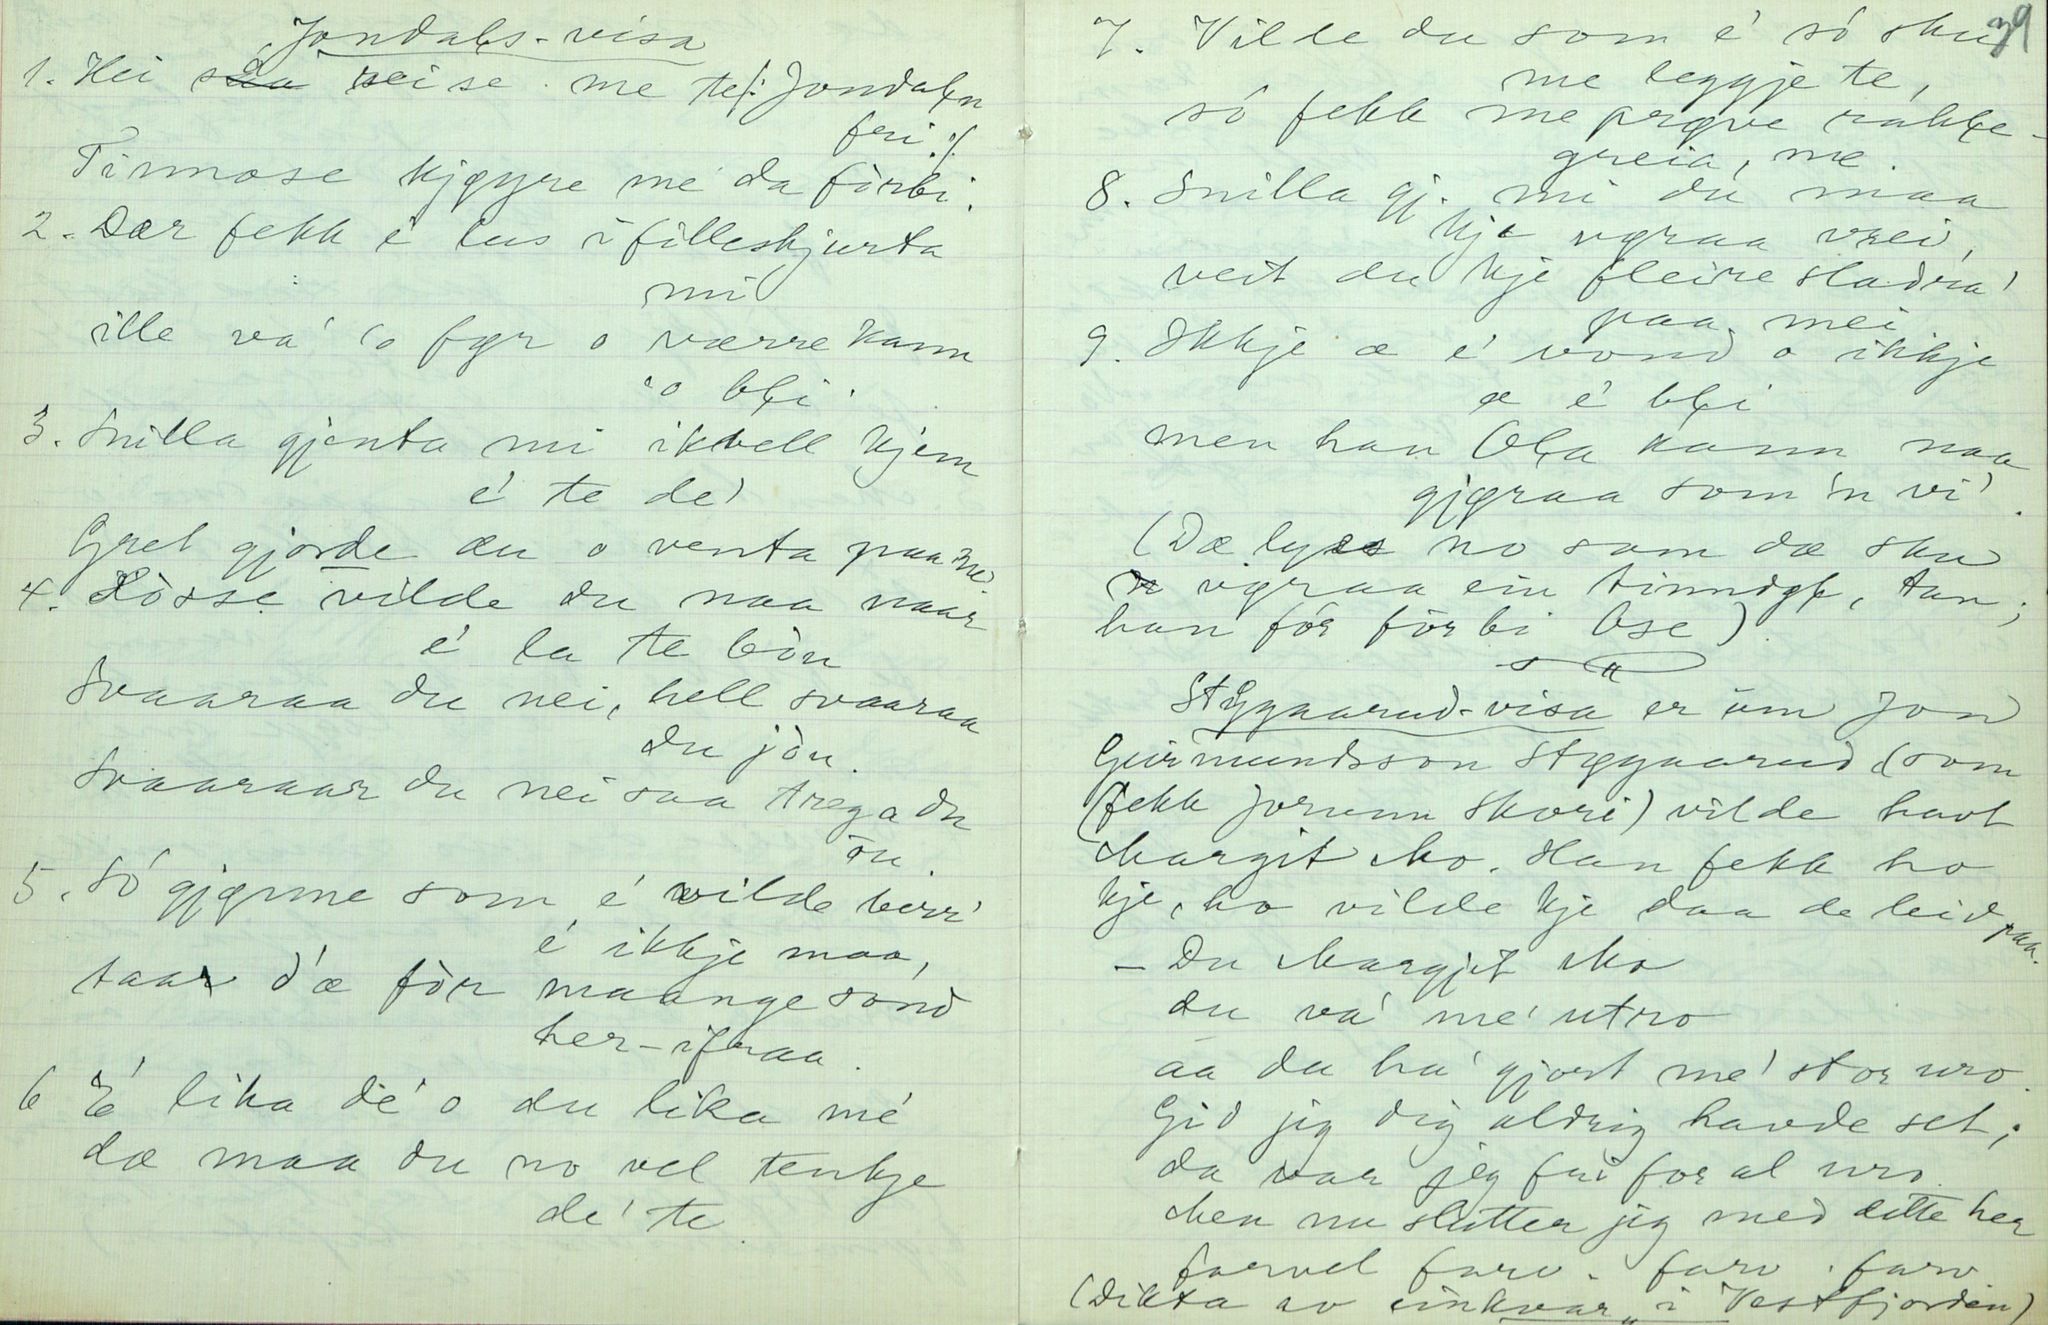 Jondals-visa
1. Hei saa reise me te /: Jondaln
fri :/
Tinnose kjøyre me da fòrbi.
2. Dær fekk é lus i filleskjurta
mi
ille va' o før o værre kann
'o bli.
3. Snilla gjenta mi ikvell kjem
é te de'
Gret gjorde du o venta paa me'
4. Hòsse vilde du naa naar
é la te bòn
Svaaraa du nei, hell svaaraa
du jòn.
Svaaraar du nei saa trega du
òn
5. Só gjønne som é vilde berr'
é ikkje maa,
taar d'æ fòr maange sond
her-ifraa.
6 É lika dé o du lika mé
dæ maa du no vel tenkje
de' te
39
7. Vilde du som é só sku
me leggje te,
só fekk me prøve rakke-
greia, me.
8. Snilla gj. mi du maa
kje vøraa vrei,
veit du kje fleire sladra'
paa mei
9. Ikkje æ é vond o ikkje
æ é bli
men han Ola kann naa
gjøraa som 'n vi'.
(Dæ lyes no som dæ sku
vøraa ein tinndøl, tan;
han fór fòrbi Ose)
Styggaarud-visa er um Jon
Geirmundsson Styggaarud (som
(fekk Jorunn Skori) vilde havt
Margit Mo. Han fekk ho
kje, ho vilde kje daa de leid paa.
- Du Margjit Mo
du va' me' utro
aa du ha' gjort me' stor uro.
Gid jeg dig aldrig havde set;
da var jeg fri for al uro.
Men nu slutter jeg med dette her
farvel farv. farv. farv.
(Dikta av einkvar i Vestfjorden)